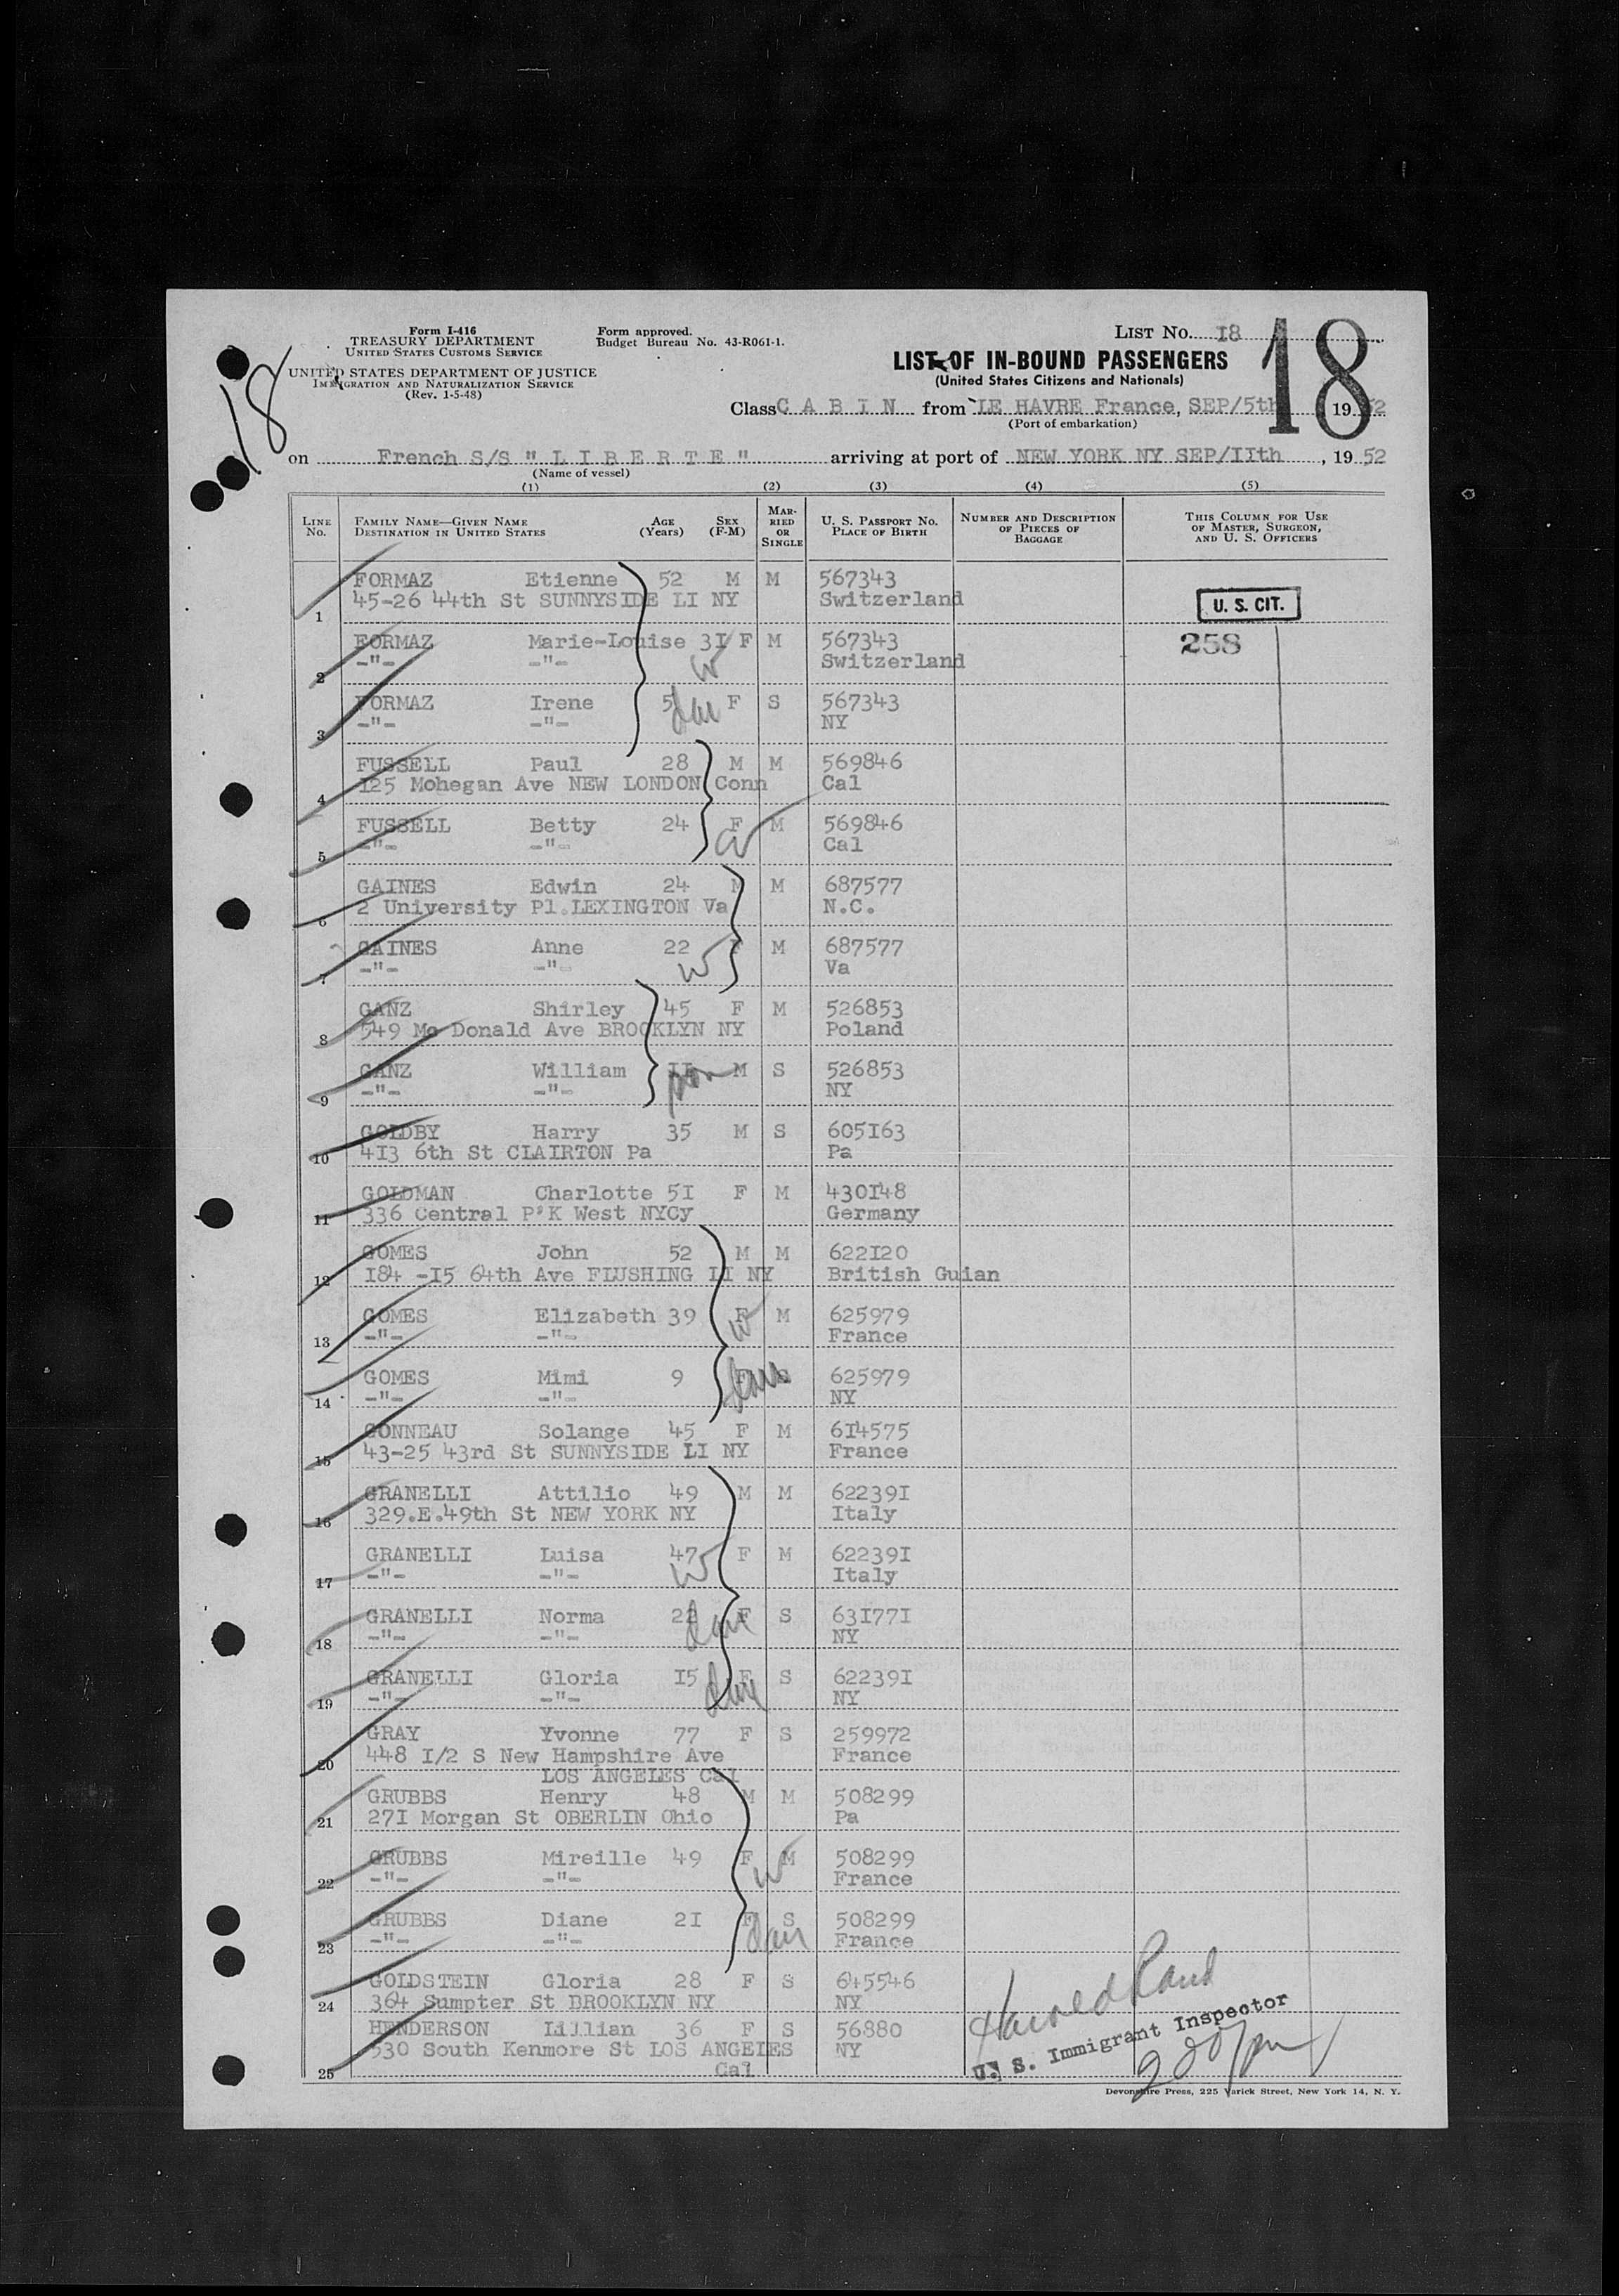 Form I-416
TREASURY DEPARTMENT
UNITED STATES CUSTOMS SERVICE
UNITED STATES DEPARTMENT OF JUSTICE
IMMIGRATION AND NATURALIZATION SERVICE
(Rev. 1-5-48)
Form approved.
Budget Bureau No. 43-R061-1.
LIST No. I8
18
18
LIST OF IN-BOUND PASSENGERS
(United States Citizens and Nationals)
Class C A B I N from LE HAVRE France, SEP/5th 1952
(Port of embarkation)
on French S/S " L I B E R T E " arriving at port of NEW YORK NY SEP/IIth, 1952
(Name of vessel)
(1) (2) (3) (4) (5)
LINE No. FAMILY NAME—GIVEN NAME DESTINATION IN UNITED STATES AGE (Years) SEX (F-M) MARRIED OR SINGLE U. S. PASSPORT No. PLACE OF BIRTH NUMBER AND DESCRIPTION OF PIECES OF BAGGAGE THIS COLUMN FOR USE OF MASTER, SURGEON, AND U. S. OFFICERS
FORMAZ Etienne 52 M M 567343
1 45-26 44th St SUNNYSIDE LI NY Switzerland
U. S. CIT.
258
FORMAZ Marie-Louise 3I F M 567343
2 -"- -"- W Switzerland
FORMAZ Irene 5 dau F S 567343
3 -"- -"- NY
FUSSELL Paul 28 M M 569846
4 125 Mohegan Ave NEW LONDON Conn Cal
FUSSELL Betty 24 F M 569846
5 -"- -"- W Cal
GAINES Edwin 24 M M 687577
6 2 University Pl.LEXINGTON Va N.C.
GAINES Anne 22 F M 687577
7 -"- -"- W Va
GANZ Shirley 45 F M 526853
8 549 Mc Donald Ave BROOKLYN NY Poland
GANZ William II son M S 526853
9 -"- -"- NY
GOLDBY Harry 35 M S 605I63
10 4I3 6th St CLAIRTON Pa Pa
GOLDMAN Charlotte 5I F M 430I48
11 336 Central P'K West NYCy Germany
GOMES John 52 M M 622I20
12 I84 -I5 64th Ave FLUSHING LI NY British Guian
GOMES Elizabeth 39 F M 625979
13 -"- -"- W France
GOMES Mimi 9 F S 625979
14 -"- -"- dau NY
GONNEAU Solange 45 F M 6I4575
15 43-25 43rd St SUNNYSIDE LI NY France
GRANELLI Attilio 49 M M 62239I
16 329.E.49th St NEW YORK NY Italy
GRANELLI Luisa 47 F M 62239I
17 -"- -"- W Italy
GRANELLI Norma 22 F S 63I77I
18 -"- -"- dau NY
GRANELLI Gloria I5 F S 62239I
19 -"- -"- dau NY
GRAY Yvonne 77 F S 259972
20 448 I/2 S New Hampshire Ave France
LOS ANGELES Cal
GRUBBS Henry 48 M M 508299
21 27I Morgan St OBERLIN Ohio Pa
GRUBBS Mireille 49 F M 508299
22 -"- -"- W France
GRUBBS Diane 2I F S 508299
23 -"- -"- dau France
GOLDSTEIN Gloria 28 F S 645546
24 364 Sumpter St BROOKLYN NY NY
HENDERSON Lillian 36 F S 56880
530 South Kenmore St LOS ANGELES NY
25 Cal
U. S. Immigrant Inspector
Devonshire Press, 225 Varick Street, New York 14, N. Y.